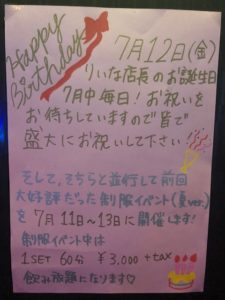 Happy Birthday
7月12日(金)
りいな店長のお誕生日
7月中毎日!お祝いを
お待ちしていますので皆で
盛大にお祝いして下さい
そして、そちらと並行して前回
大好評だった制服イベント(夏ver.)
を7月11日~13日に開催します!
制服イベント中は
1SET 60分 ¥3,000+tax
飲み放題になります♡